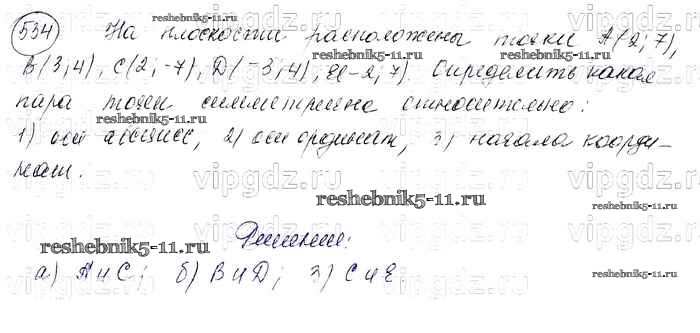 534 На плоскости расположены точки A(2; 7),
B(3; 4), C(2; -7), D(-3; 4), E(-2; 7). Определить какая
пара точек симметрична относительно:
1) оси абсцисс, 2) оси ординат, 3) начала коорди-
нат.
Решение:
а) A и C; б) B и D; 3) C и E.
reshebnik5-11.ru
reshebnik5-11.ru
reshebnik5-11.ru
reshebnik5-11.ru
reshebnik5-11.ru
reshebnik5-11.ru
reshebnik5-11.ru
vipgdz.ru
vipgdz.ru
vipgdz.ru
vipgdz.ru